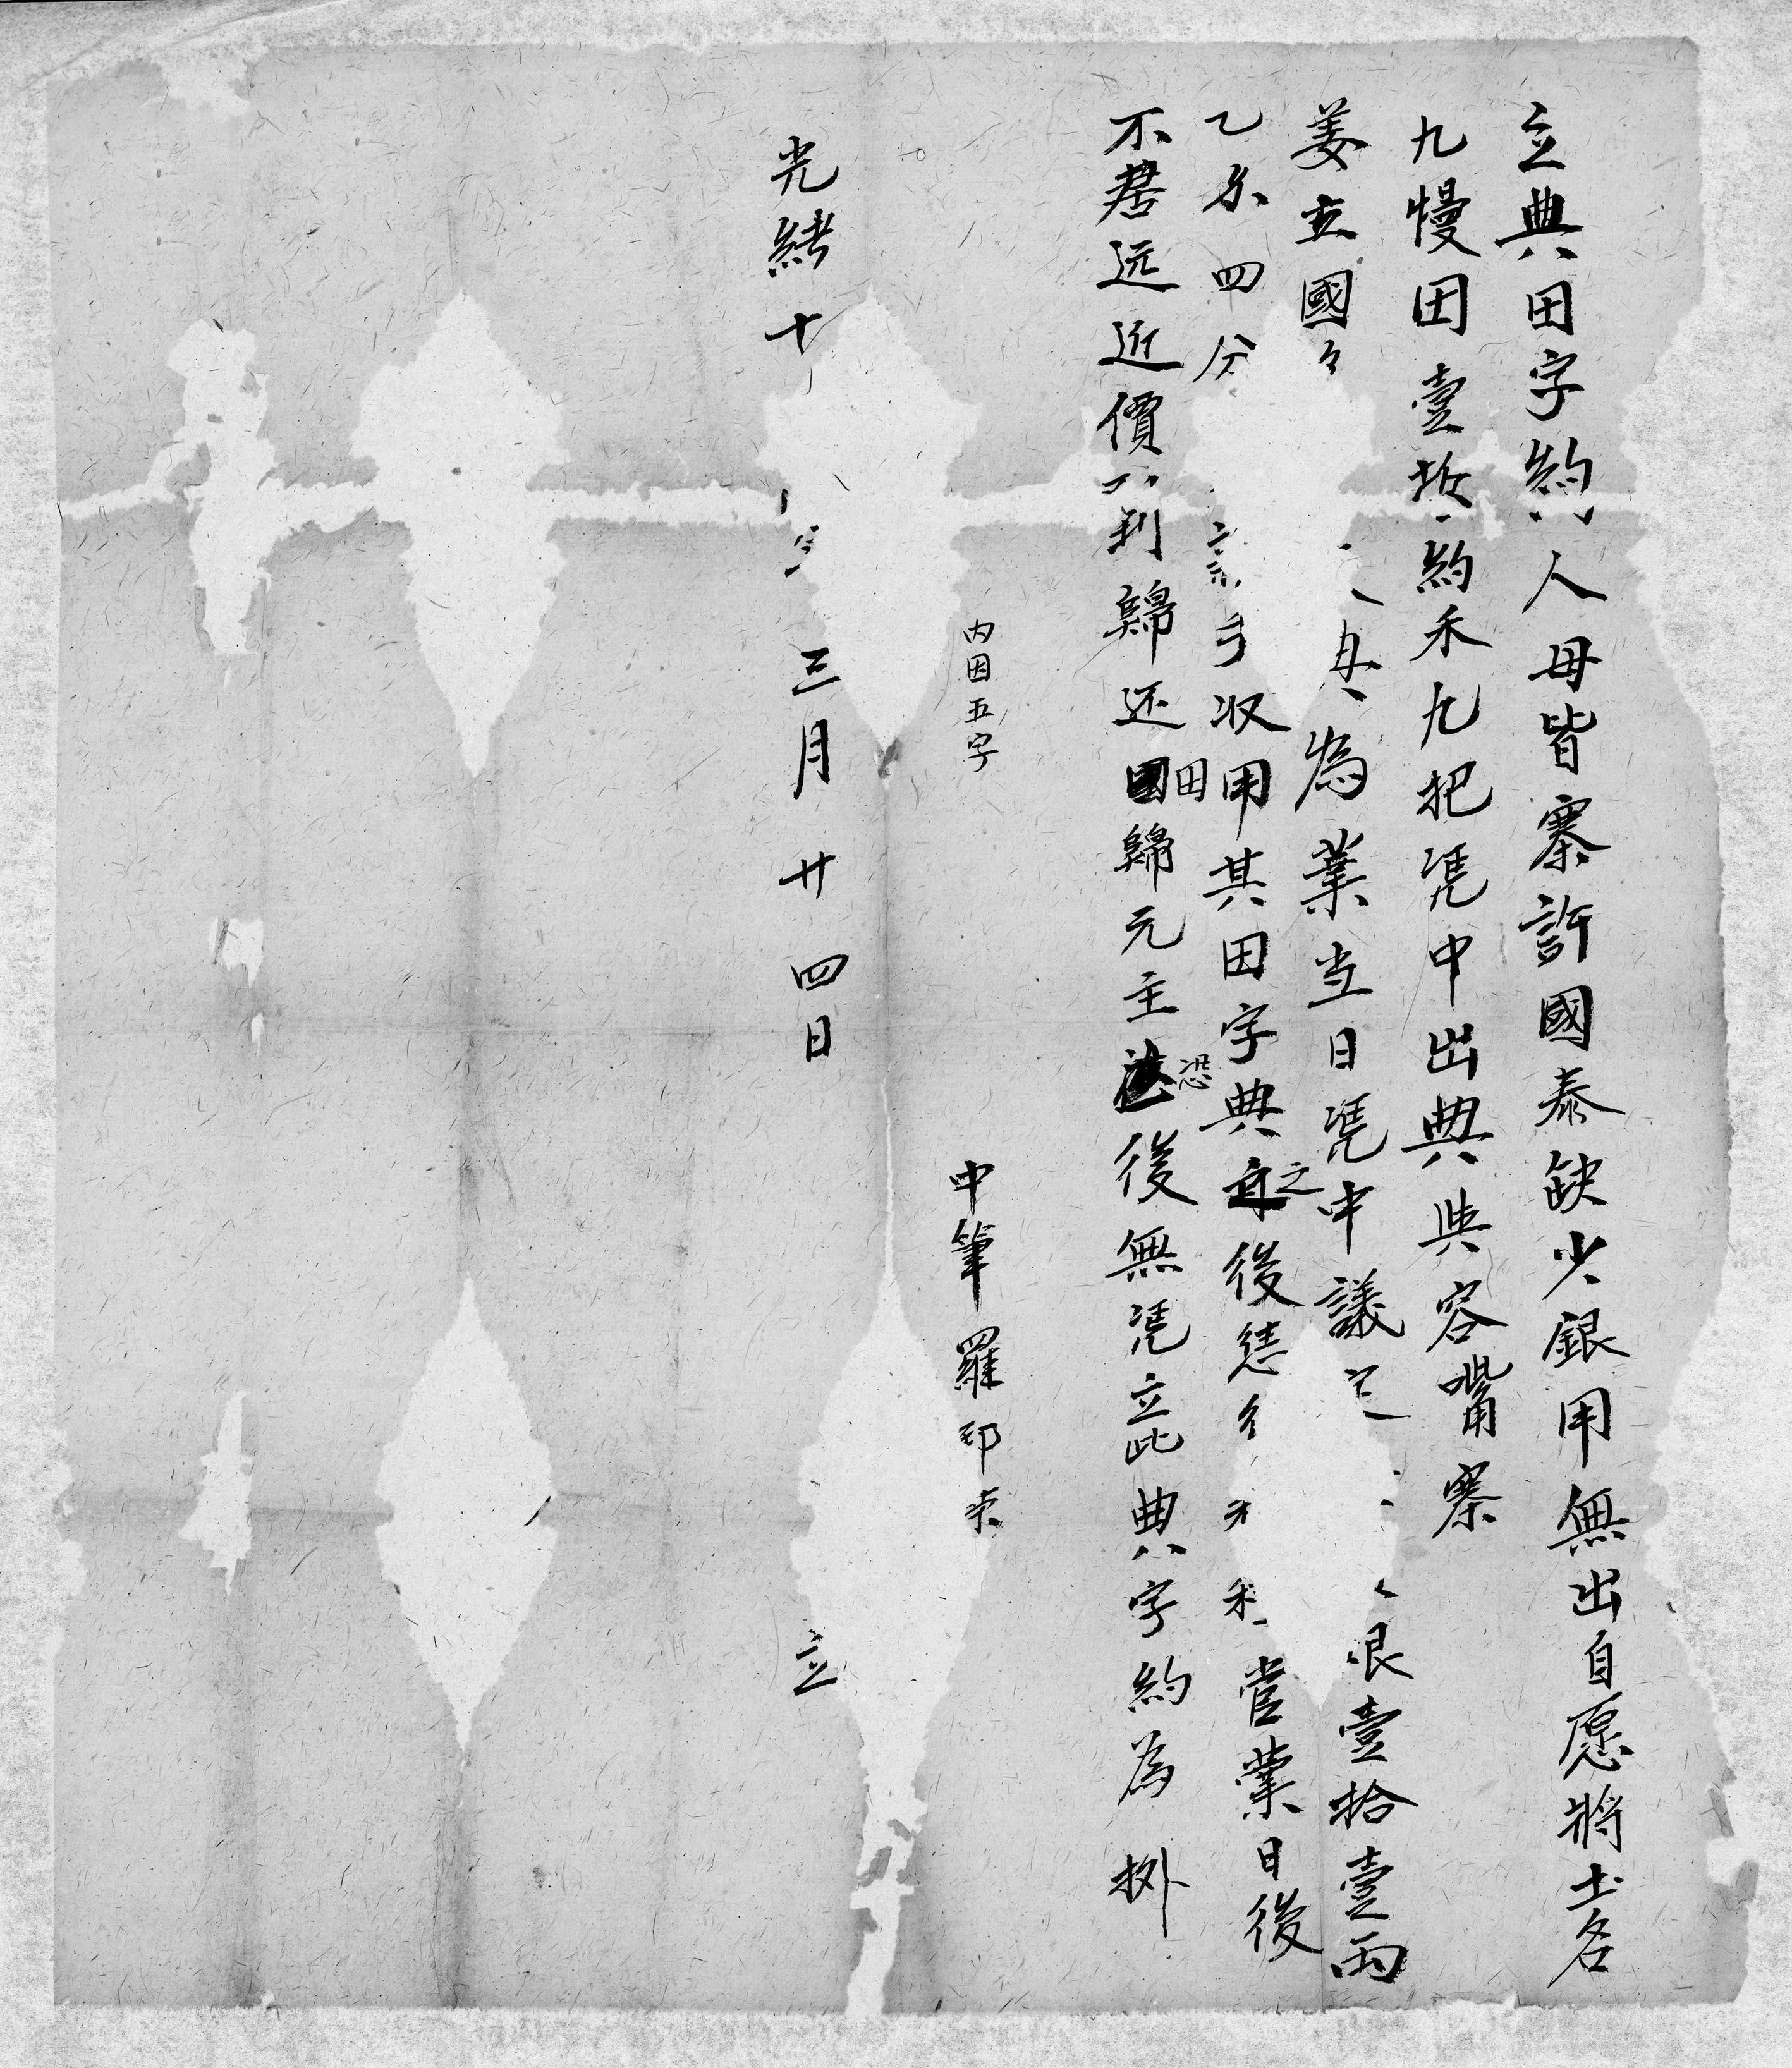 立典田字約人毋皆寨許國泰缺少銀用無出自愿將土名
九慢田壹坵約禾九把凴中出典與容嘴寨
姜玉國為業当日凴中議定銀壹拾壹両
乙分四分収用其田字典之後管業日後
不居远近價到歸还田歸元主恐後無凴立此典字約為
内因五字
中筆羅印
光緒十三月廿四日立